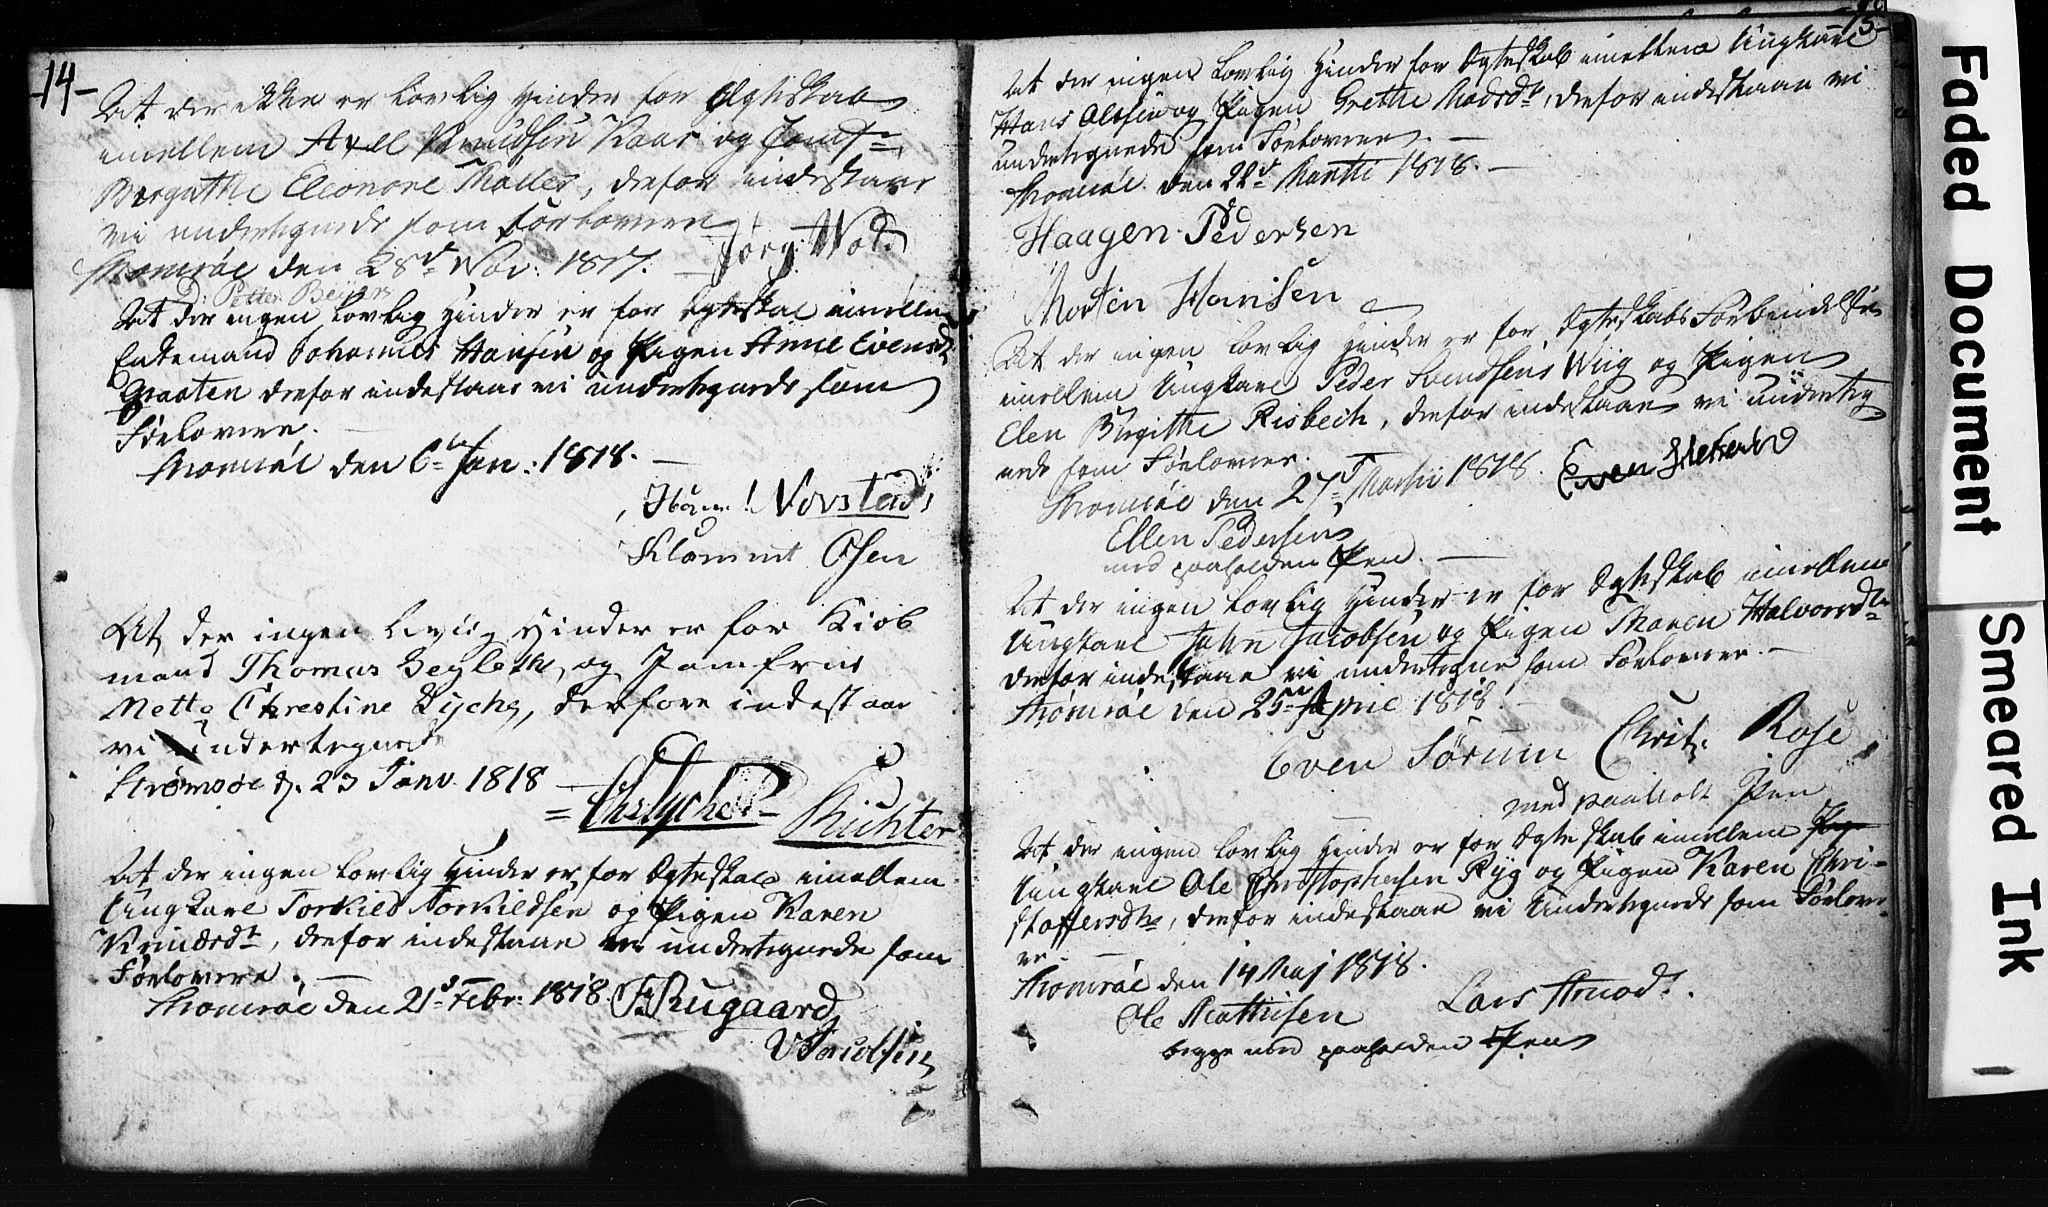 -14-
At der ikke er Lovlig Hinder for Ægteskab
imellem Axell Knudsen Kaas og Jomf:
Birgithe Eleonore Møller, derfor indestaar
vi undertegnede som Forlovere
Strømsøe den 28d Nov: 1817. Jörg: Wod
Petter Beyer
At der ingen Lovlig Hinder er for Egteskab imellem
Enkemand Johannes Hansen og Pigen Anne Evensd:
Graaten derfor indestaar vi undertegnede som
Forlovere.
Strømsøe den 6te Jan: 1818.
Novstad
Klemmet Olsen
At der ingen lovlig Hinder er for Kiøb
mand Thomas Segleth, og Jomfrue
Mette Chrestine Lyche, derfore indestaar
vi undertegnede
Strømsøe d. 23 Janv. 1818
Chr Lyche
Richter
At der ingen Lovlig Hinder er for Egteskab imellem
Ungkarl Torkild Torkildsen og Pigen Karen
Knudsdt, derfor indestaar vi undertegnede som
Forlovere.
Strømsøe den 21d Febr: 1818 F. Rugaard
Jacobsen
15-
At der ingen Lovlig Hinder for Egteskab imellem Ungkarl
Hans Olssen og Pigen Grethe Madsdt, derfor indestaar vi
undertegnede som Forlovere.
Strømsøe den 22d Martii 1818.
Haagen Pedersen
Morten Hansen
At der ingen Lovlig Hinder er for Egteskabs Forbindelse
imellem Ungkarl Peder Svendsen Wiig og Pigen
Elen Birgithe Risbech, derfor indestaar vi underteg
nede som Forlovere.
Strømsøe den 27d Martii 1818. Even
Ellen Pedersen
med paaholden Pen.
At der ingen Lovlig Hinder er for Egteskab imellem
Ungkarl John Jacobsen og Pigen Maren Halvorsdt
derfor indestaar vi undertegnede som Forlovere.
Strømsøe den 25de April 1818.
Even Sörum Christ. Rose
med paaholt Pen
At der ingen Lovlig Hinder er for Egteskab imellem
Ungkarl Ole Christophersen Ryg og Pigen Karen Chri-
stoffersdt, derfor indestaar vi Undertegnede som Forlove-
re.
Strømsøe den 14 Maj 1818.
Ole Mathisen Lars Amod
begge med paaholden Pen
Faded Document
Smeared Ink